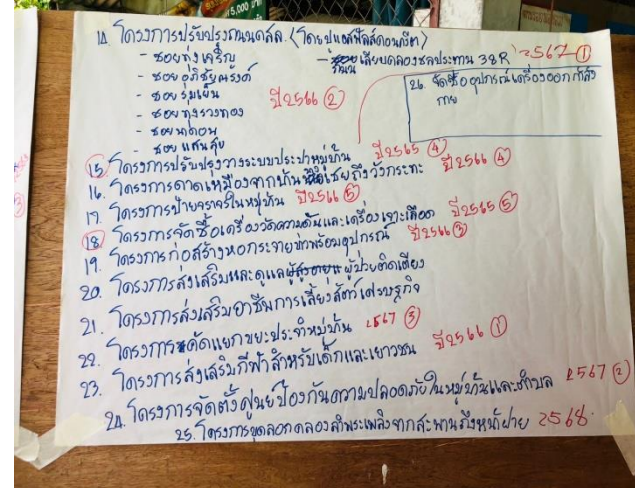 14. โครงการปรับปรุงถนนคสล. (โดยปูแอสฟัลส์คอนกรีต)
- ซอยทุ่งเจริญ - ถนนเลียบคลองชลประทาน 38R 2567 ①
- ซอยอภิชัยณรงค์
- ซอยร่มเย็น ปี2566 ②
- ซอยทุ่งรวงทอง
- ซอยนาดอน
- ซอยแสนสุข
26. จัดซื้ออุปกรณ์เครื่องออกกำลัง
กาย
15. โครงการปรับปรุงวางระบบประปาหมู่บ้าน ปี2565 ④
16. โครงการดาดเหมืองจากบ้านเชยถึงวังกระทะ ปี2566 ④
17. โครงการป้ายจราจรในหมู่บ้าน ปี2566 ⑤
18. โครงการจัดซื้อเครื่องวัดความดันและเครื่องเจาะเลือด ปี2565 ⑤
19. โครงการก่อสร้างหอกระจายข่าวพร้อมอุปกรณ์ ปี2566 ③
20. โครงการส่งเสริมและดูแลผู้สูงอายุผู้ป่วยติดเตียง
21. โครงการส่งเสริมอาชีพการเลี้ยงสัตว์เศรษฐกิจ
22. โครงการคัดแยกขยะประจำหมู่บ้าน 2567 ③
23. โครงการส่งเสริมกีฬาสำหรับเด็กและเยาวชน ปี2566 ①
24. โครงการจัดตั้งศูนย์ป้องกันความปลอดภัยในหมู่บ้านและตำบล 2567 ②
25. โครงการขุดลอกคลองลำพระเพลิงจากสะพานถึงหน้าฝาย 2568